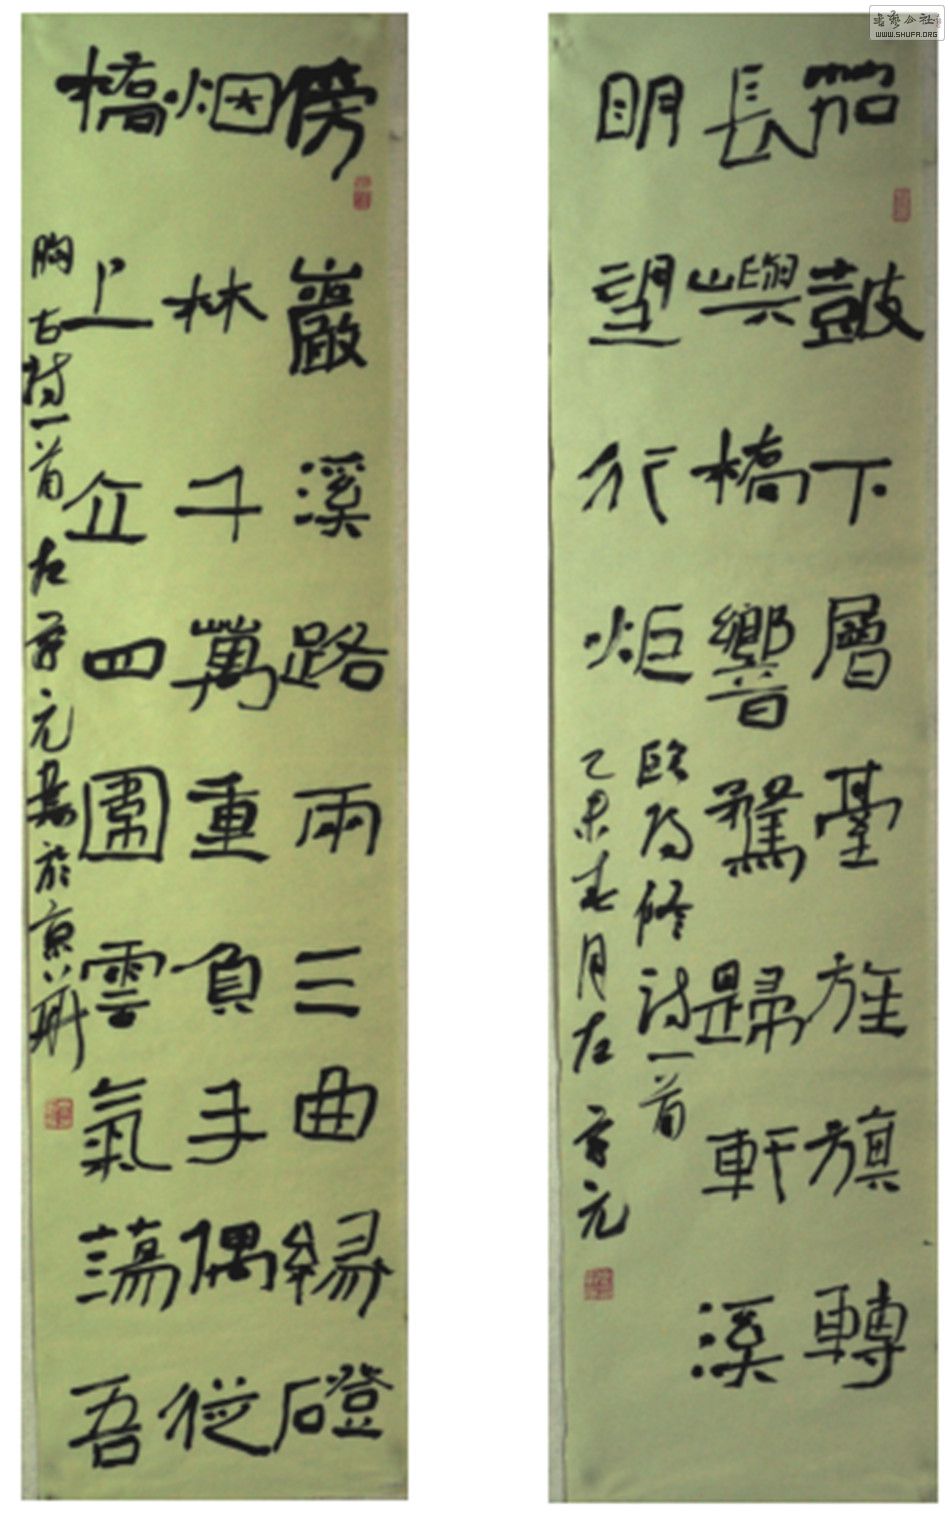 笳鼓下層臺旌旗轉
長嶼橋響驚歸軒溪
明望行炬
歐陽修詩一首
乙未春月左彥元
傍巖溪路兩三曲緣磴
烟林千萬重負手偶從
橋上立四圍雲氣蕩吾
胸古詩一首左彥元書於京華
WWW.SHUFA.ORG